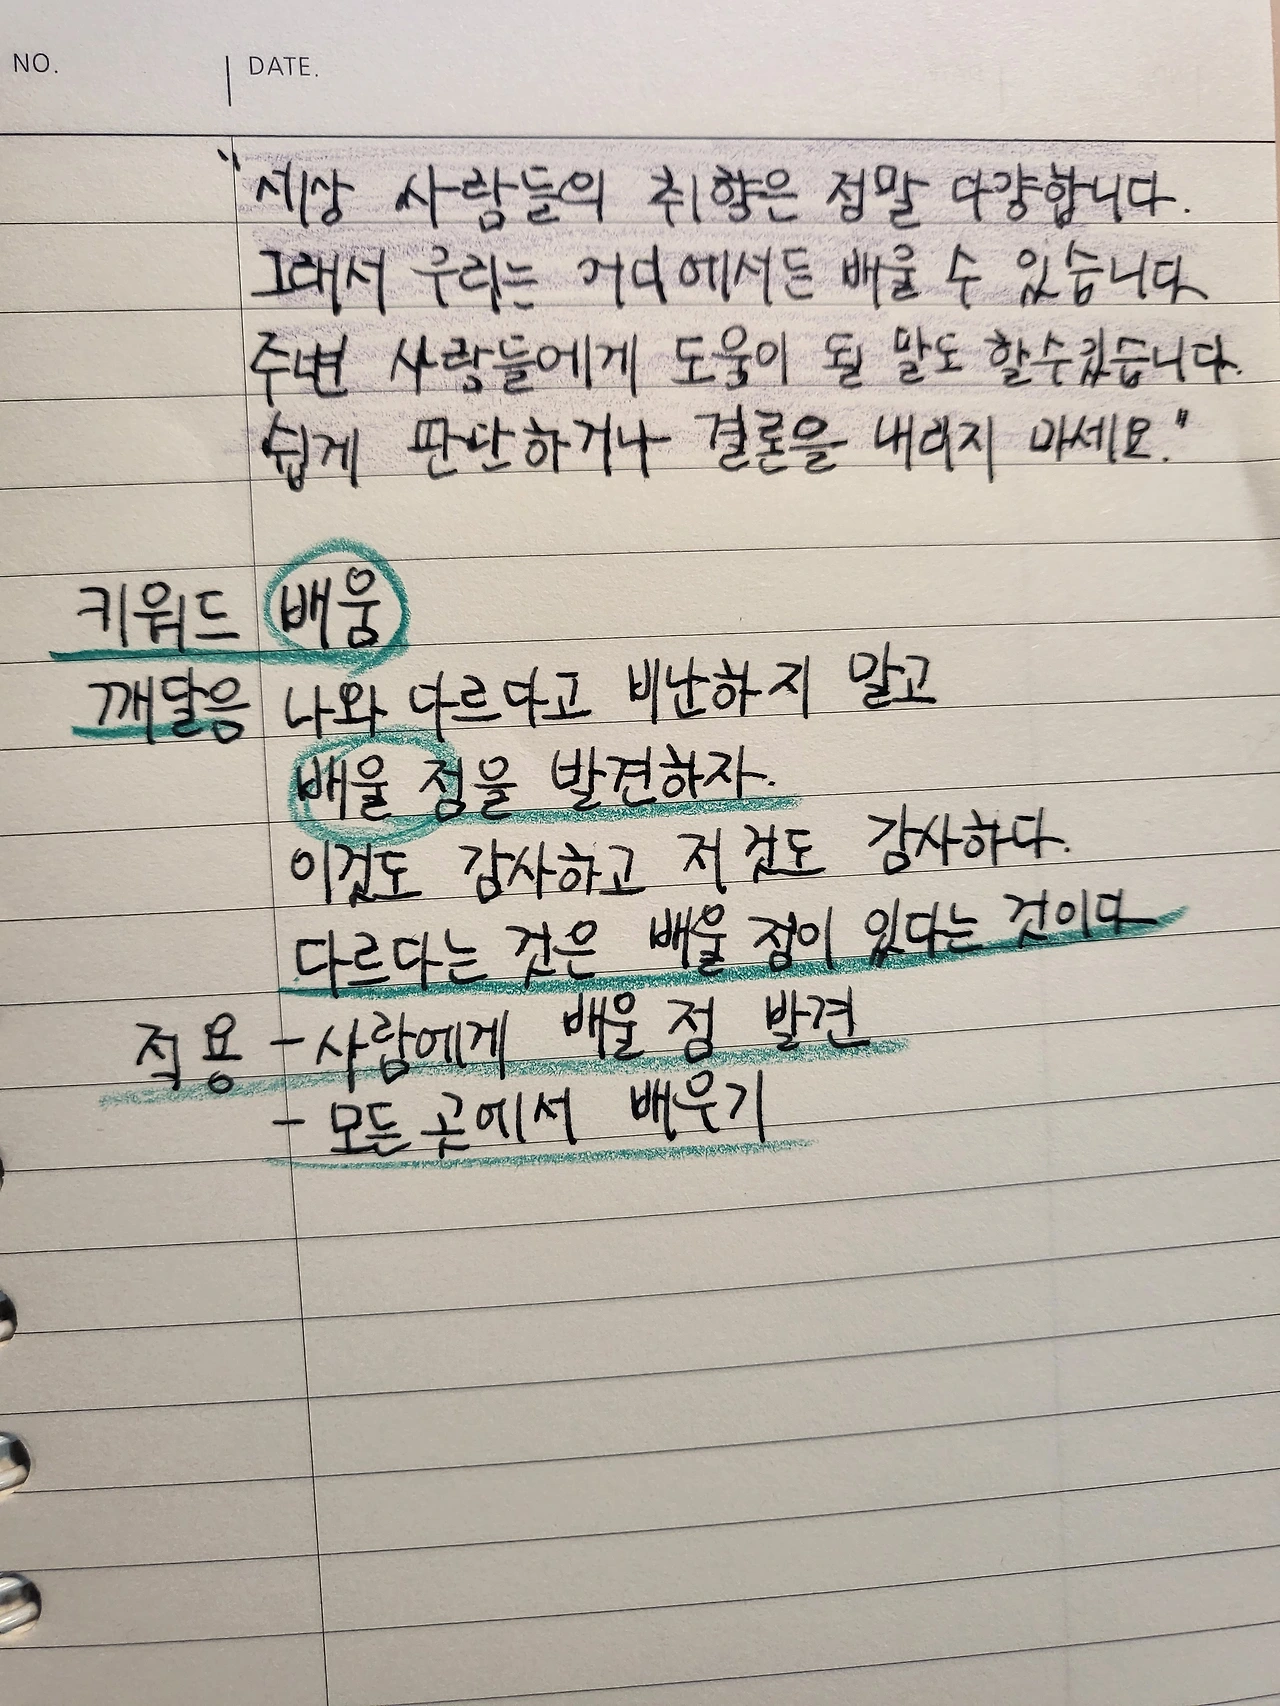 NO.
DATE.
"세상 사람들의 취향은 정말 다양합니다.
그래서 우리는 어디에서든 배울 수 있습니다
주변 사람들에게 도움이 될 말도 할수있습니다.
쉽게 판단하거나 결론을 내리지 마세요."
키워드 배움
깨달음 나와 다르다고 비난하지 말고
배울 점을 발견하자.
이것도 감사하고 저것도 감사하다.
다르다는 것은 배울 점이 있다는 것이다
적용 - 사람에게 배울 점 발견
- 모든 곳에서 배우기